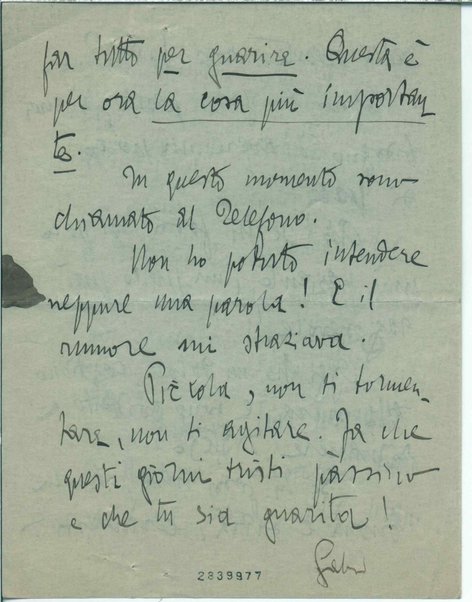 far tutto per guarire. Questa è
per ora la cosa più importan
te.
In questo momento sono
chiamato al Telefono.
Non ho potuto intendere
neppure una parola! E il
rumore mi straziava.
Piccola, non ti tormen-
tare, non ti agitare. Fa che
questi giorni tristi passino
e che tu sia guarita!
Gabri
2839977